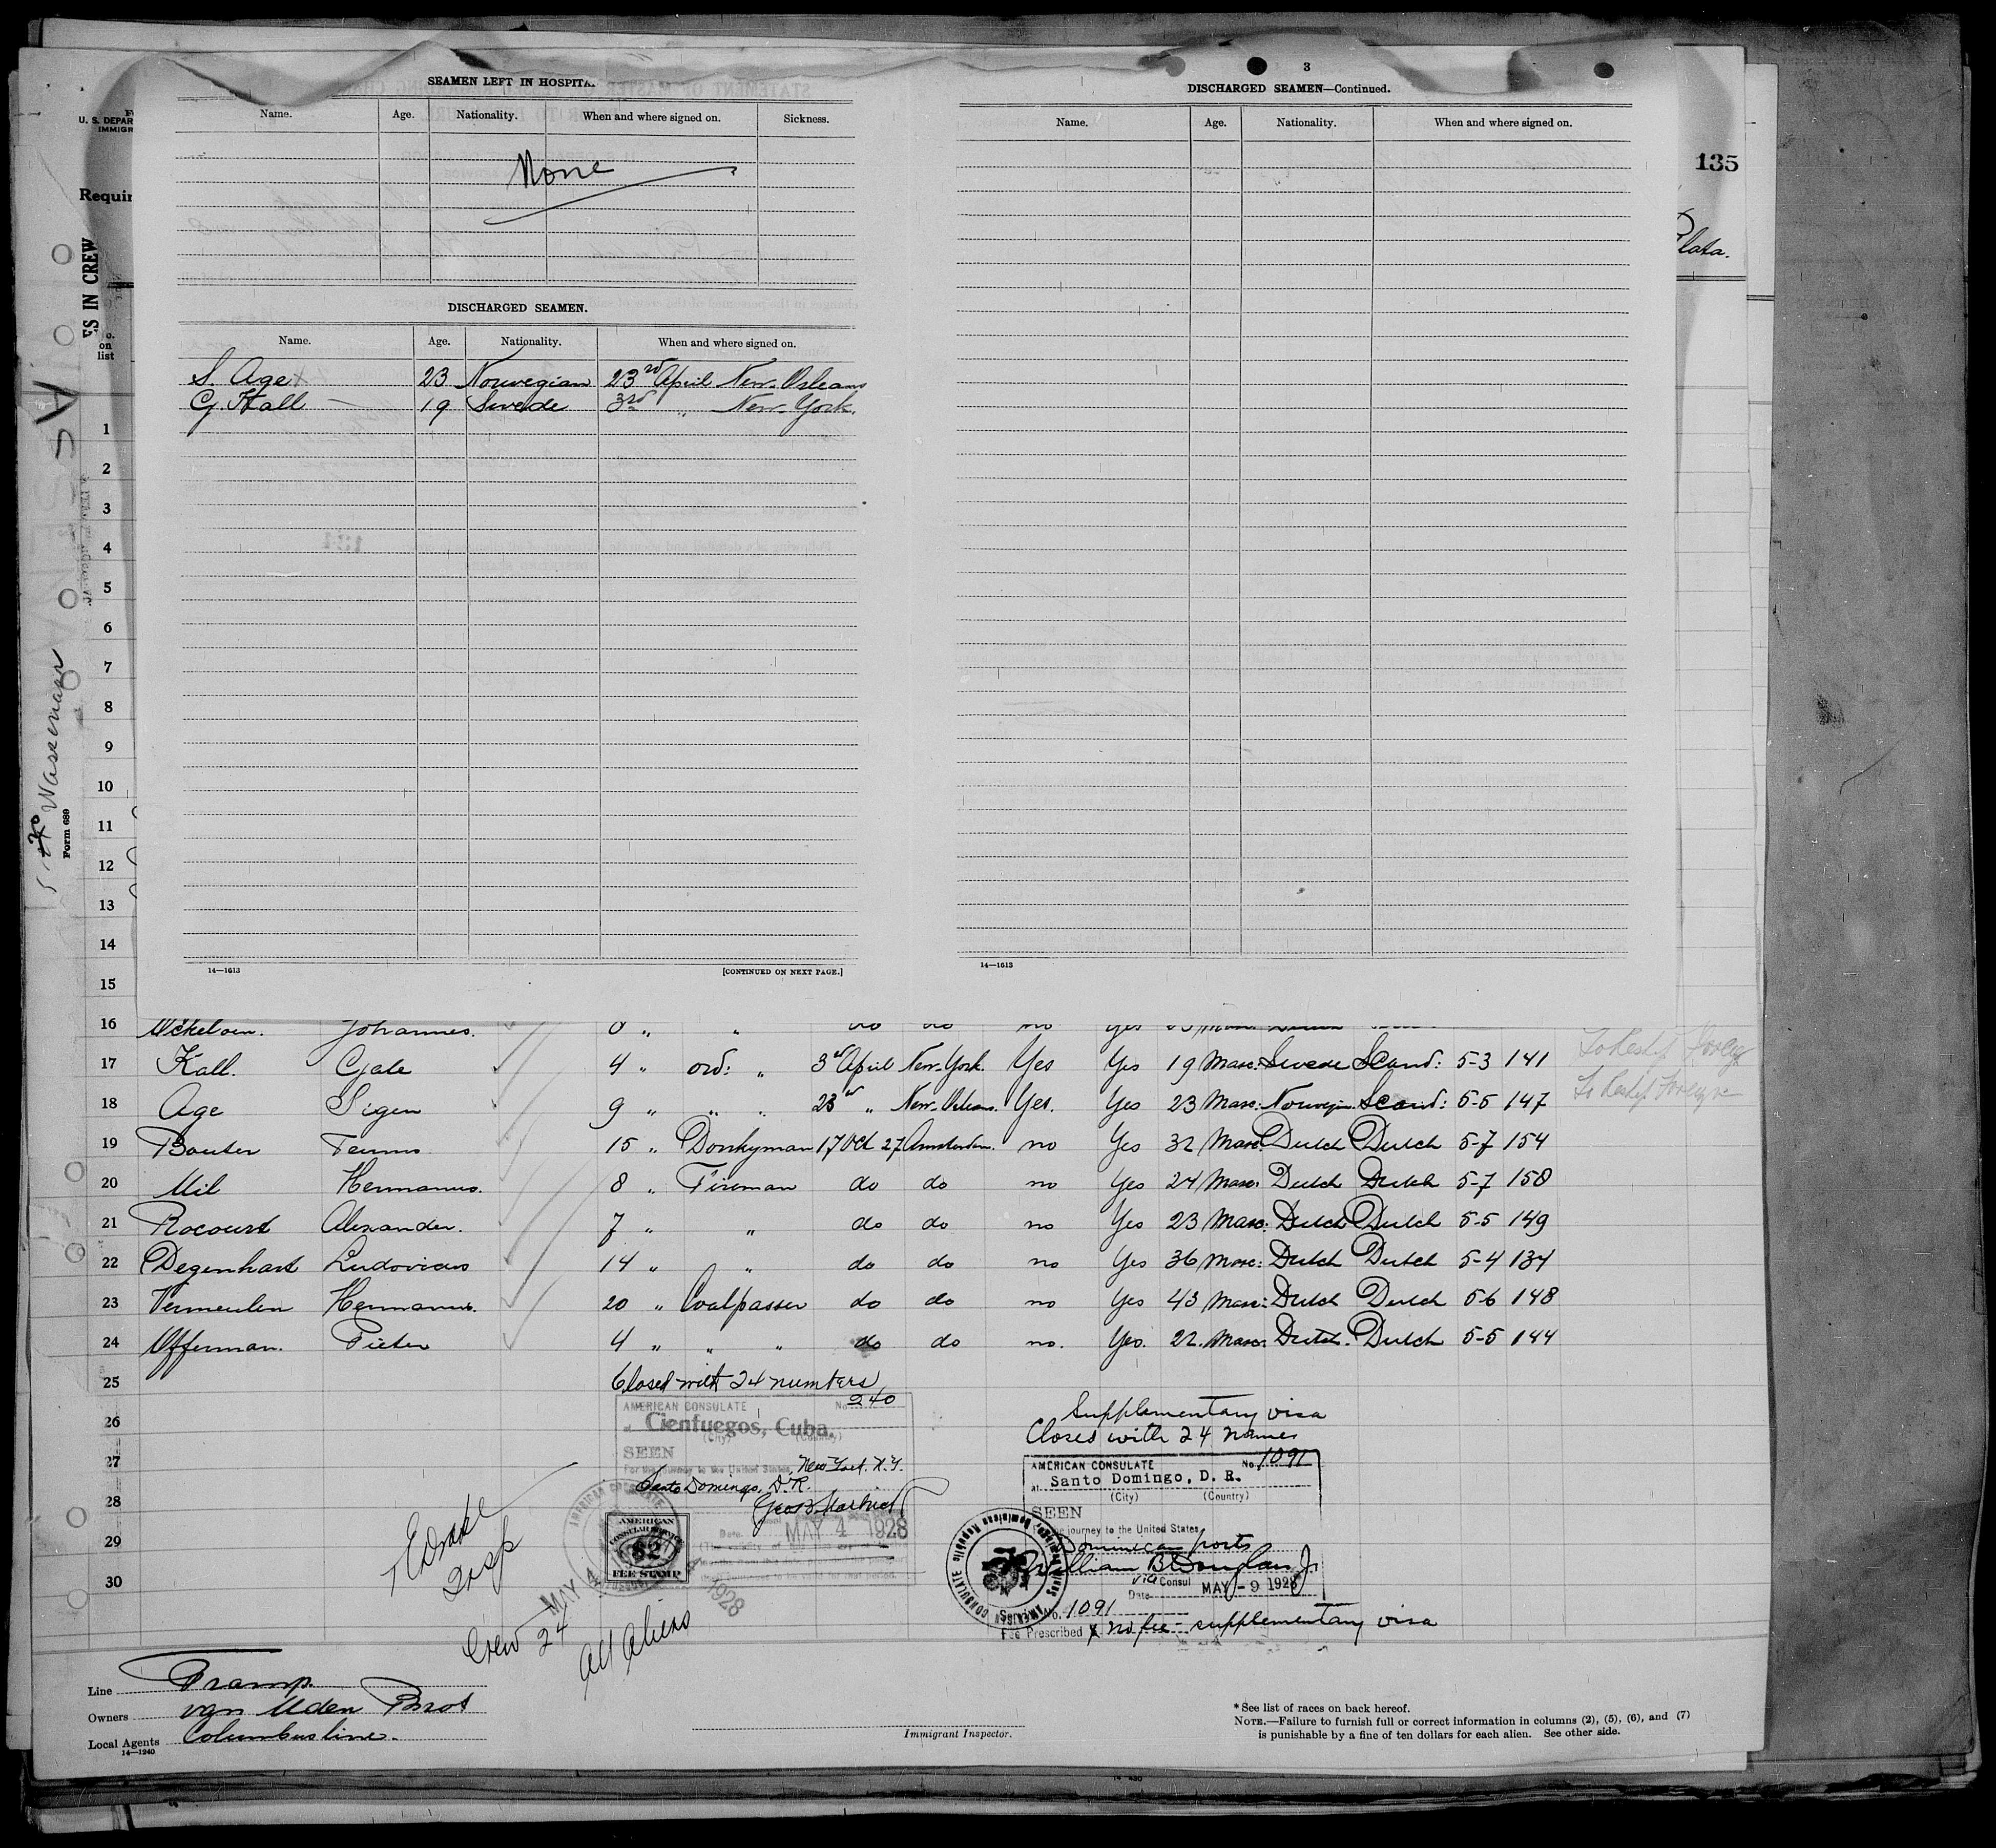 SEAMEN LEFT IN HOSPITA.
Name. Age. Nationality. When and where signed on. Sickness.
None
DISCHARGED SEAMEN.
Name. Age. Nationality. When and where signed on.
S. Age 23 Norwegian 23rd April New-Orleans
G. Hall 19 Swede 3rd " New-York.
14—1613 [CONTINUED ON NEXT PAGE.]
3
DISCHARGED SEAMEN—Continued.
Name. Age. Nationality. When and where signed on.
14—1613
135
Plata.
U. S. DEPAR
IMMIGR
Requir
ES IN CREW
on
list
Wassenaar
Form 689
1
2
3
4
5
6
7
8
9
10
11
12
13
14
15
16 Johannes.
17 Kall. Gjale 4 " ord: " 3rd April New-York. Yes Yes 19 Masc: Swede Scand: 5-3 141
18 Age Sigen 9 " " " 23rd " New-Orleans. Yes. Yes 23 Masc: Norwegin Scand: 5-5 147
19 Bouter Teunis 15 " Donkyman 17 Oct 27 Amsterdam. no Yes 32 Masc: Dutch Dutch 5-7 154
20 Mil Hermanus. 8 " Fireman do do no Yes 24 Masc: Dutch Dutch 5-7 158
21 Rocourt Alexander. 7 " " do do no Yes 23 Masc: Dutch Dutch 5-5 149
22 Degenhart Ludovicus 14 " " do do no Yes 36 Masc: Dutch Dutch 5-4 134
23 Vermeulen Hermanus. 20 " Coalpasser do do no Yes 43 Masc: Dutch Dutch 5-6 148
24 Offerman. Pieter 4 " " " do do no. Yes. 22. Masc: Dutch. Dutch 5-5 144
25 Closed with 24 numbers
26
27
28
29
30
AMERICAN CONSULATE No. 240
at Cienfuegos, Cuba.
(City) (Country)
SEEN
For the journey to the United States, New York. N.Y.
Santo Domingo, D.R.
Date MAY 4 1928
AMERICAN
CONSULAR SERVICE
$2
FEE STAMP
MAY 4 1928
Supplementary visa
Closes with 24 names
AMERICAN CONSULATE No. 1091
at Santo Domingo, D. R.
(City) (Country)
SEEN
journey to the United States
Dominican ports
William B Douglas Jr.
Vice Consul
Date MAY - 9 1928
No. 1091
Fee Prescribed no fee - supplementary visa
AMERICAN CONSULATE Santo Domingo, Dominican Republic
Crew 24
All Aliens
Line Tramp.
Owners van Uden Bros
Local Agents Columbusline.
14—1240
Immigrant Inspector.
*See list of races on back hereof.
NOTE.—Failure to furnish full or correct information in columns (2), (5), (6), and (7)
is punishable by a fine of ten dollars for each alien. See other side.